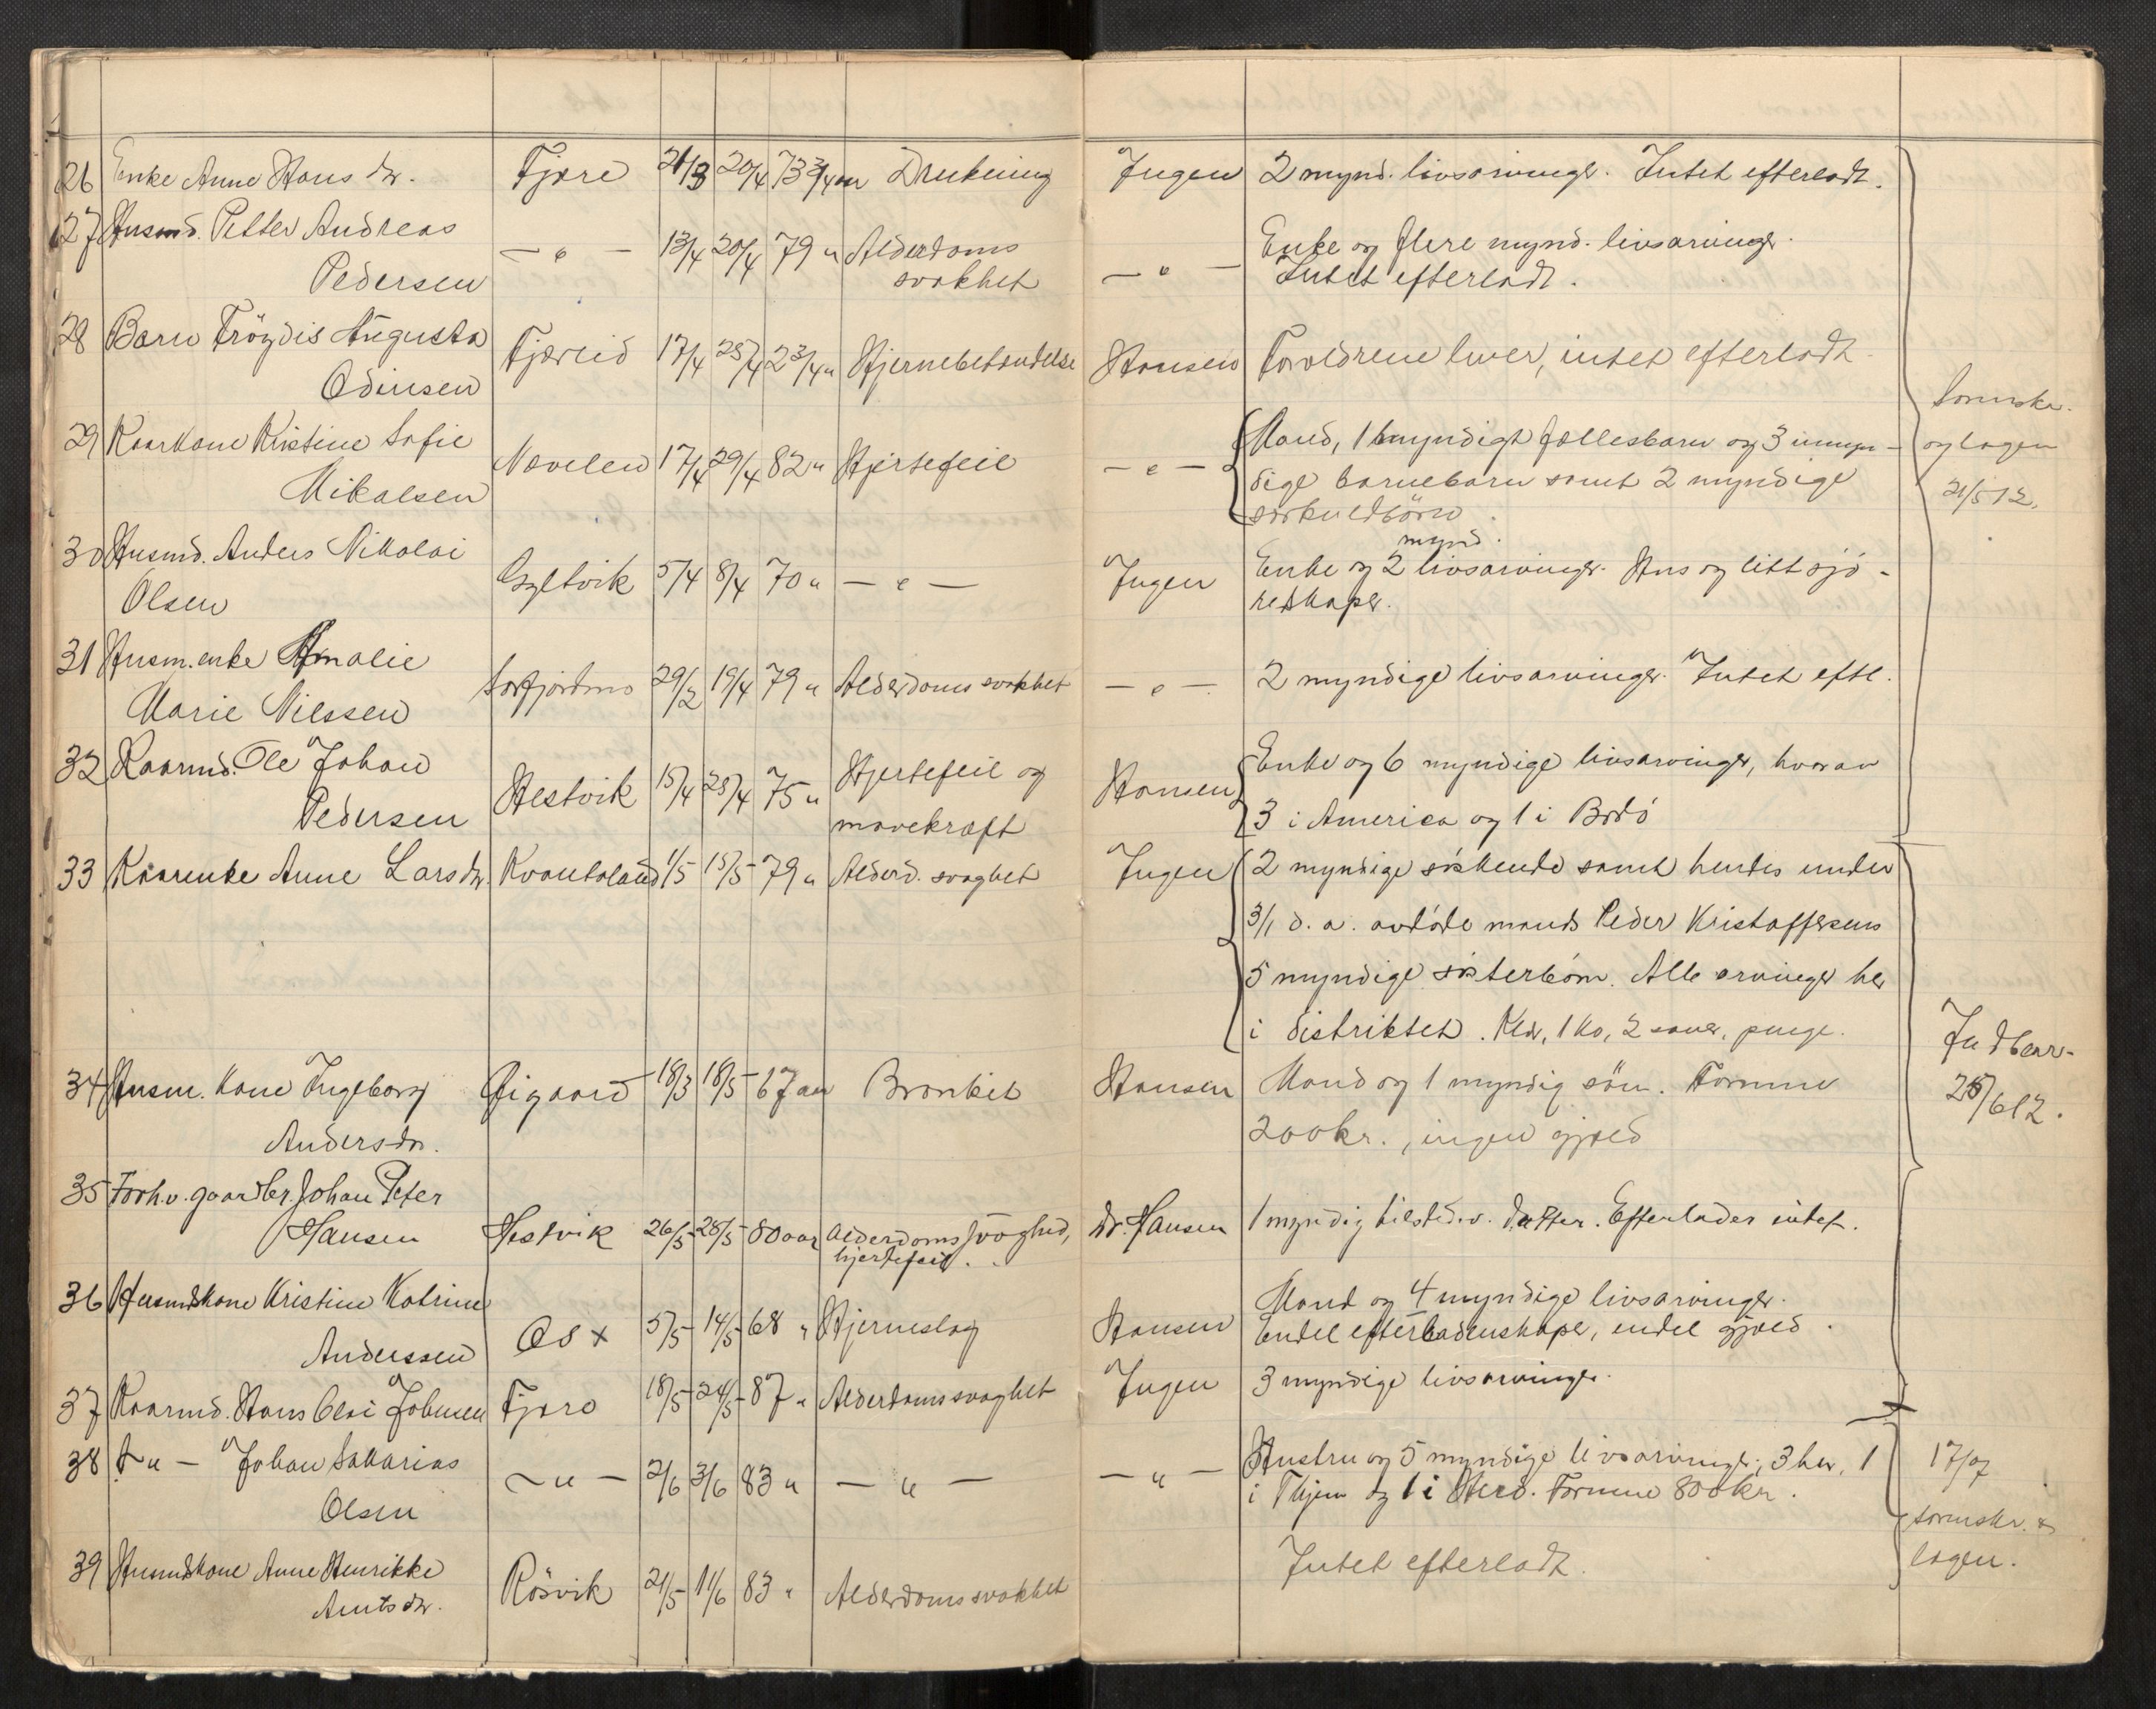 26 Enke Anne Hansdr. Fjære 21/3 20/4 73 3/4 aar Drukning Ingen 2 mynd. livsarvinger. Intet efterladt.
27 Husmd. Petter Andreas
Pedersen — " — 13/4 20/4 79 " Alderdoms Enke og flere mynd. livsarvinger.
svakhet — " — Intet efterladt.
28 Barn Fröydis Augusta
Odinsen Fjæreid 17/4 25/4 2 3/4 " Hjernebetændelse Hansen Forældrene lever, intet efterladt.
29 Kaarkone Kristine Sofie Mand, 1 myndigt fællesbarn og 3 umyn-
Mikalsen Nævelen 17/4 29/4 82 " Hjertefeil — " — dige barnebarn samt 2 myndige
særkuldbörn.
Sorenskr.
og lagen
21/5 12.
30 Husmd. Anders Nikolai mynd.
Olsen Gyltvik 5/4 8/4 70 " — " — Ingen Enke og 2 livsarvinger. Hus og litt sjö-
redskaper.
31 Husm.enke Amalie
Marie Nilssen Sørfjordmo 29/2 19/4 79 " Alderdomssvakhet — " — 2 myndige livsarvinger. Intet eftl.
32 Kaarmd. Ole Johan Hjertefeil og Enke og 6 myndige livsarvinger, hvorav
Pedersen Hestvik 15/4 28/4 75 " mavekræft Hansen 3 i America og 1 i Bodö
33 Kaarenke Anne Larsdr. Kvantoland 1/5 15/5 79 " Alderd. svaghet Ingen 2 myndige söskende samt hendes under
3/1 d. a. avdöde mands Peder Kristoffersens
5 myndige sösterbörn. Alle arvinger her
i distriktet. Klær, 1 ko, 2 sauer, penge.
Indber-
25/6 12.
34 Husm. kone Ingeborg
Andersdr. Øigaard 18/3 18/5 67 aar Bronkit Hansen Mand og 1 myndig sön. Formue
200 kr., ingen gjæld
35 Forhv. gaardbr. Johan Peter
Hansen Hestvik 26/5 28/5 80 aar Alderdomssvaghed, Dr. Hansen 1 myndig tilstedev. datter. Efterlader intet.
hjertefeil.
36 Husmdskone Kristine Katrine Mand og 4 myndige livsarvinger.
Anderssen Os x 5/5 14/5 68 " Hjerneslag Hansen Endel efterladenskaper, endel gjæld.
37 Kaarmd. Hans Olai Johnsen Fjære 18/5 24/5 87 " Alderdomssvaghet Ingen 3 myndige livsarvinger.
38 — " — Johan Sakarias Hustru og 5 myndige livsarvinger, 3 her, 1
Olsen — " — 2/6 3/6 83 " — " — — " — i og 1 i . Formue 800 kr.
17/07
sorenskr. &
lagen.
39 Husmdskone Anne Henrikke Intet efterladt.
Amtsdr. Rösvik 21/5 11/6 83 " Alderdomssvakhet